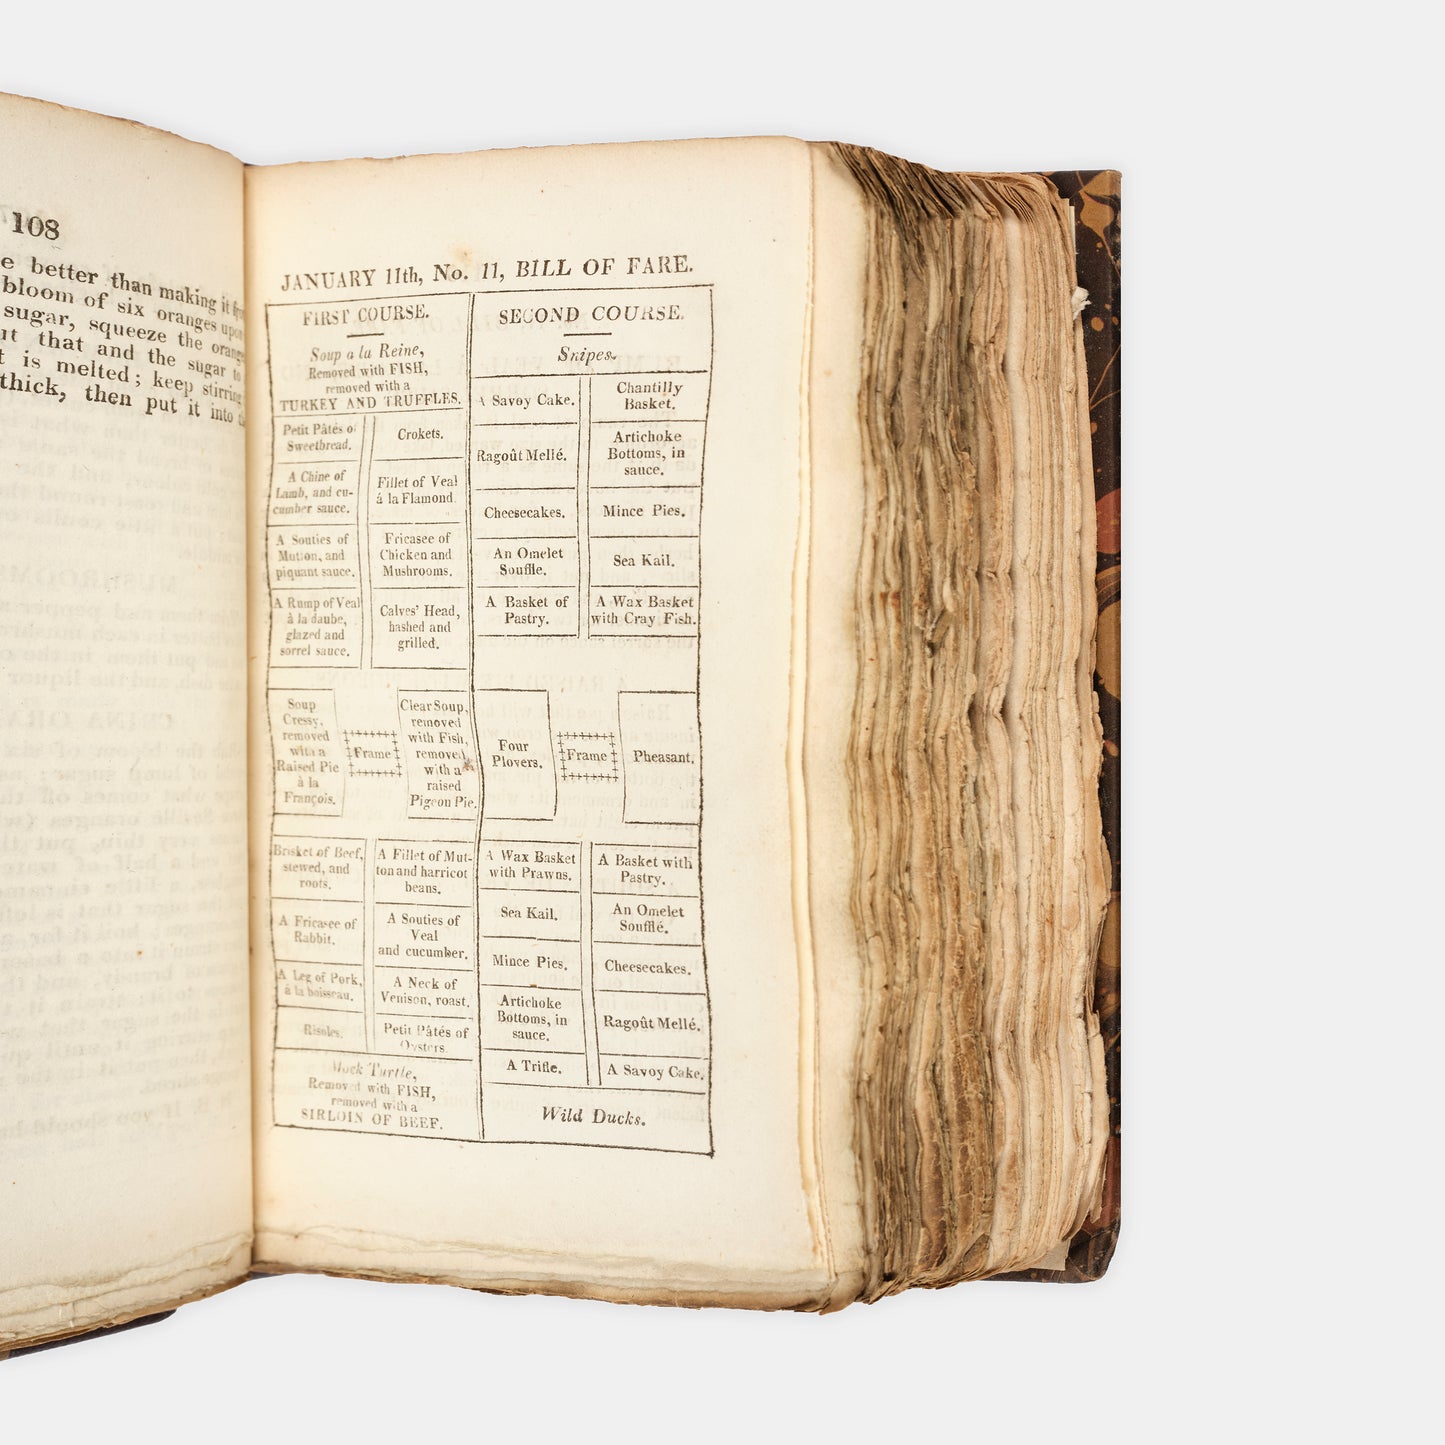 108
e better than making it
bloom of six oranges upon
sugar, squeeze the
that and the sugar to
t is melted; keep stirring
thick, then put it into
JANUARY 11th, No. 11, BILL OF FARE.
FIRST COURSE.
Soup a la Reine,
Removed with FISH,
removed with a
TURKEY AND TRUFFLES.
Petit Pâtés of
Sweetbread.
Crokets.
A Chine of
Lamb, and cu-
cumber sauce.
Fillet of Veal
á la Flamond.
A Souties of
Mutton, and
piquant sauce.
Fricasee of
Chicken and
Mushrooms.
A Rump of Veal
à la daube,
glazed and
sorrel sauce.
Calves' Head,
hashed and
grilled.
Soup
Cressy,
removed
with a
Raised Pie
à la
François.
Frame
Clear Soup,
removed
with Fish,
removed
with a
raised
Pigeon Pie.
Brisket of Beef,
stewed, and
roots.
A Fillet of Mut-
ton and harricot
beans.
A Fricasee of
Rabbit.
A Souties of
Veal
and cucumber.
A Leg of Pork,
à la boisseau.
A Neck of
Venison, roast.
Risoles.
Petit Pâtés of
Oysters
Mock Turtle,
Removed with FISH,
removed with a
SIRLOIN OF BEEF.
SECOND COURSE.
Snipes.
A Savoy Cake.
Chantilly
Basket.
Ragoût Mellé.
Artichoke
Bottoms, in
sauce.
Cheesecakes.
Mince Pies.
An Omelet
Souffle.
Sea Kail.
A Basket of
Pastry.
A Wax Basket
with Cray Fish.
Four
Plovers.
Frame
Pheasant.
A Wax Basket
with Prawns.
A Basket with
Pastry.
Sea Kail.
An Omelet
Soufflé.
Mince Pies.
Cheesecakes.
Artichoke
Bottoms, in
sauce.
Ragoût Mellé.
A Trifle.
A Savoy Cake.
Wild Ducks.